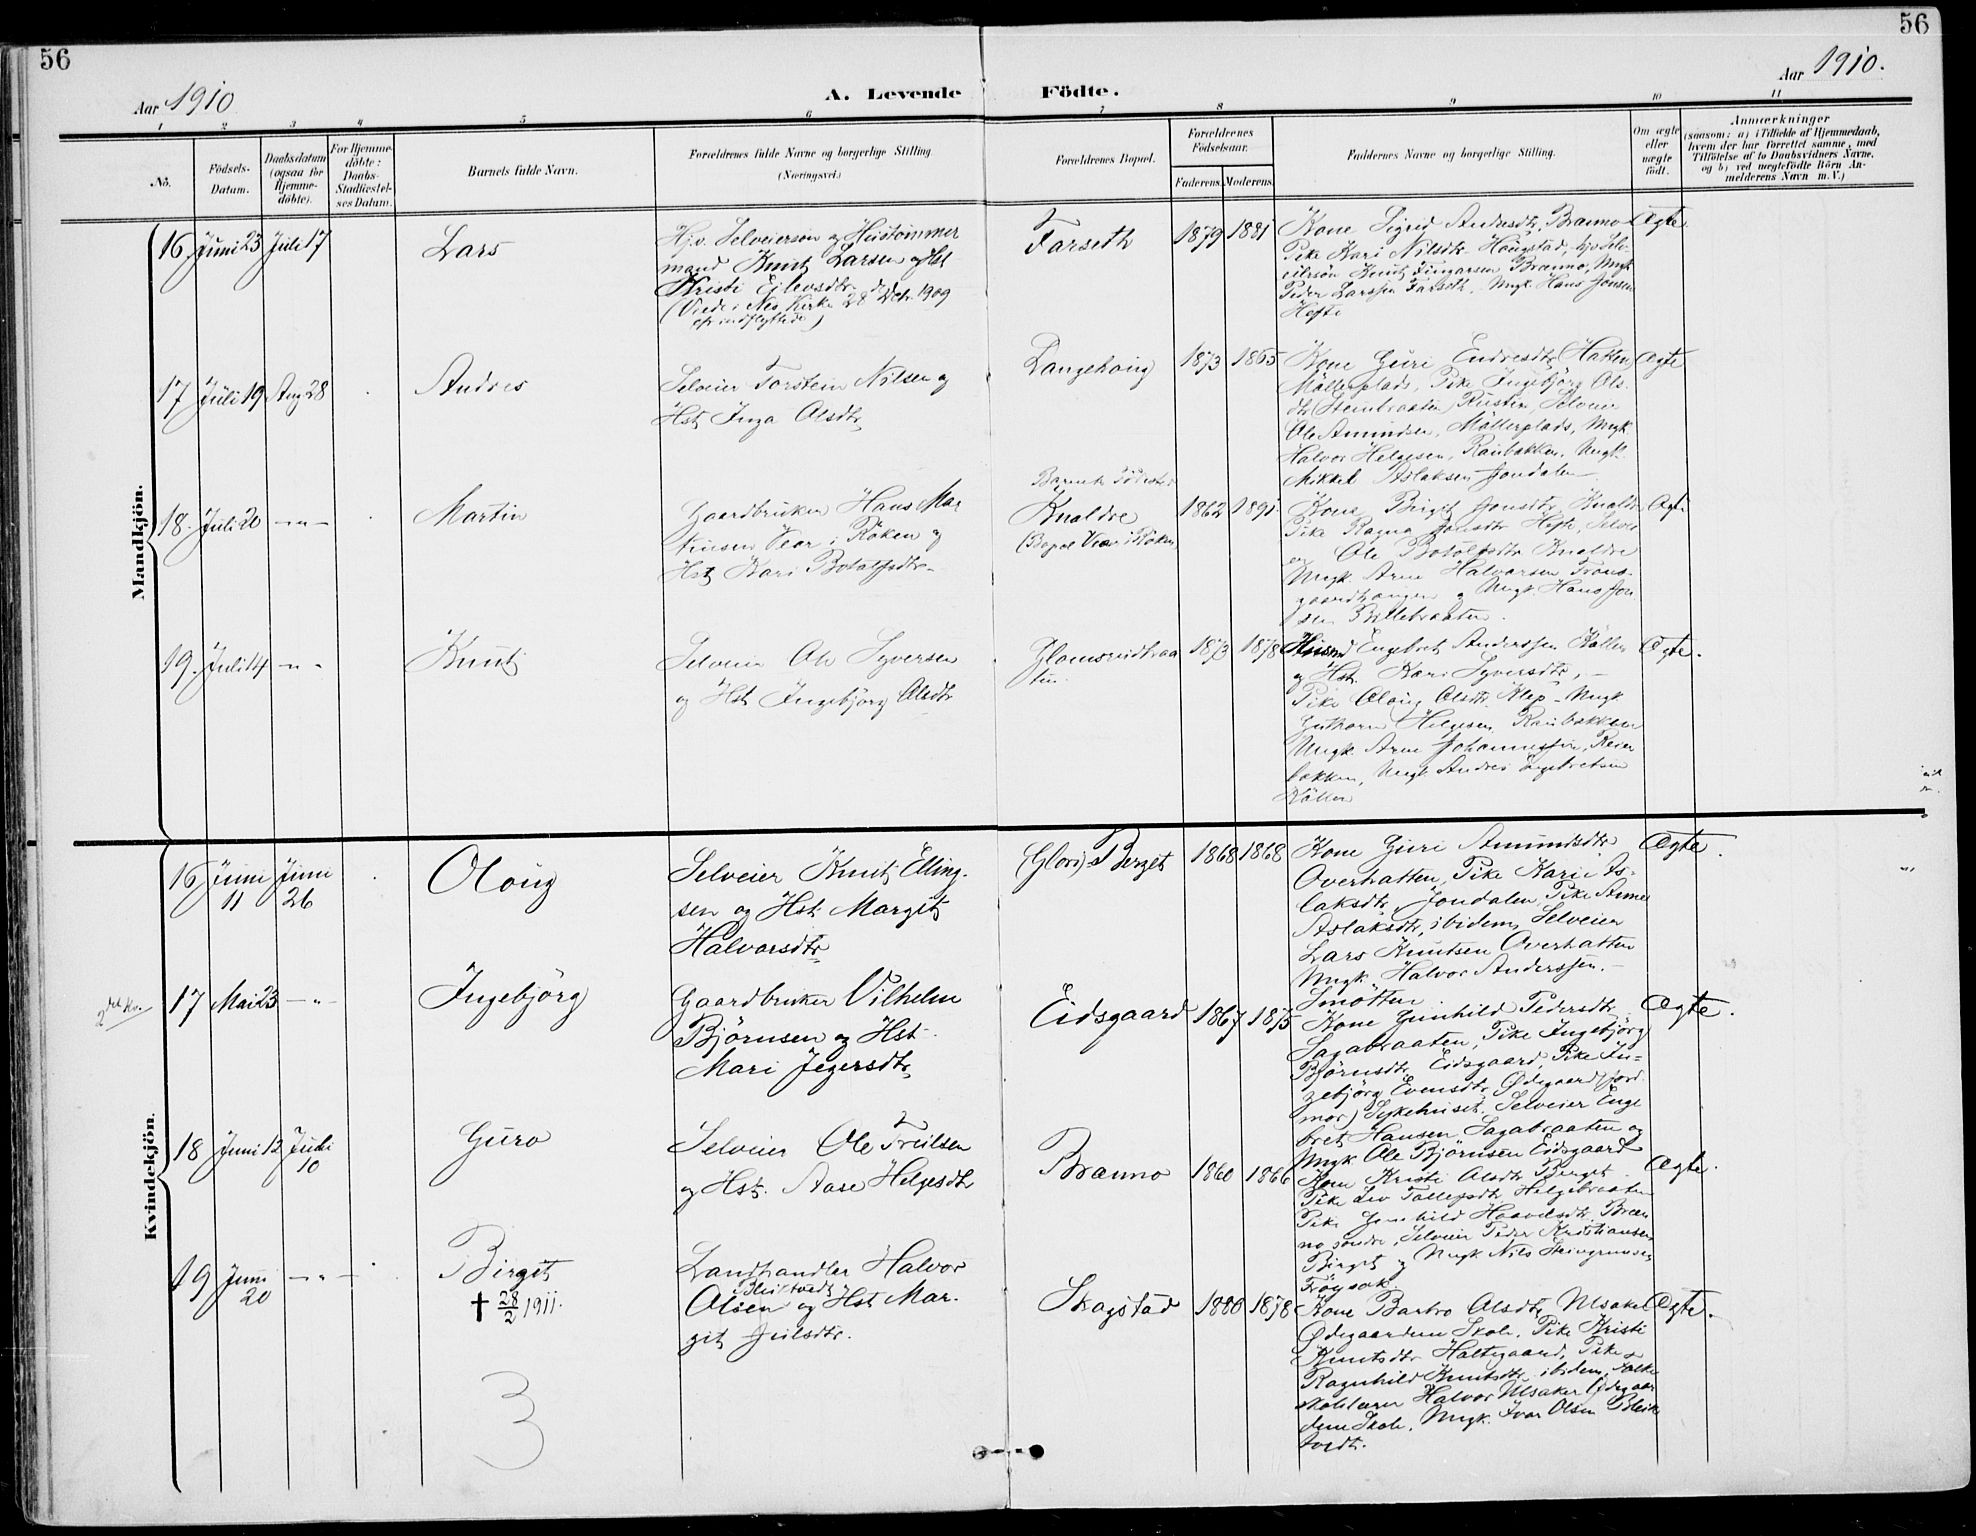 56
56
Aar 1910
A. Levende Födte.
Aar 1910.
1 2 3 4 5 6 7 8 9 10 11
No.
Födsels-
Datum.
Daabsdatum
(ogsaa for
Hjemme-
döbte).
For Hjemme-
döbte:
Daabs-
Stadfæstel-
ses Datum.
Barnets fulde Navn.
Forældrenes fulde Navne og borgerlige Stilling.
(Næringsvei.)
Forældrenes Bopæl.
Forældrenes
Födselsaar.
Faderens. Moderens.
Faddernes Navne og borgerlige Stilling.
Om ægte
eller
uægte
födt.
Anmærkninger
(saasom: a) i Tilfælde af Hjemmedaab,
hvem der har forrettet samme, med
Tilföielse af to Daabsvidners Navne,
og b) ved uægtefödte Börn An-
melderens Navn m. V.)
Mandkjön.
16 Juni 23 Juli 17
Lars
Hjv. Selveiersön og Hustömmer
mand Knut Larsen og Hst
Kristi Eilevsdtr
(Viede i Nes Kirke 28 1909
indflyttede)
Farseth
1879 1881
Kone Sigrid Andresdtr, Brænno
Pike Kari Nilsdtr. Haugstad, hjv Sel-
eiersön Knut Brænno, Ungk
Peder Larssen Farseth, Ungk Hans Jonsen
Hefte
Ægte.
17 Juli 19 Aug 28
Andres
Selveier Torstein Nilsen og
Hst Inga Olsdtr
Langehaug
1873 1865
Kone Guri Endresdtr
Möllerplads, Pike Ingebjörg Ols-
dtr (Steinbraaten) Rustin, Selveier
Ole Amundsen, Möllerplads, Ungk.
Halvor Helgesen, Raubakken, Ungk
Mikkel Aslaksen Jondalen
Ægte
18. Juli 20 -"-
Martin
Gaardbruker Hans Mar
tinsen Vear i Röken og
Hst Kari Botolfsdtr
Barnets Födested
Knaldre
(Bopæl Vear i Röken)
1862 1891
Kone Birgit Jonsdtr, Knaldre
Pike Ragna Jonsdtr Hefte, Selvei
er Ole Botolfsdtr Knaldre
Ungk. Arne Halvorsen
og Ungk. Hans Jon
sen Billebraaten.
Ægte
19. Juli 14 -"-
Knut
Selveier Ole Syversen
og Hst Ingebjörg Olsdtr
Glomsrudbraa
ten.
1873 1878
Husmd Engebret Anderssen Kollen
og Hst. Kari Syversdtr, -
Pike Olaug Olsdtr Klep - Ungk
Guthorm Helgesen, Raubakken
Ungk. Arne Johannessen,
bakken, Ungk Andres Engebretsen
Kollen
Ægte.
Kvindekjön.
16 Juni
11 Juni
26
Olaug
Selveier Knut Elling-
sen og Hst. Margit
Halvorsdtr
(Glori) Berget
1868 1868
Kone Guri Amundsdtr
Overhatten, Pike Kari As-
laksdtr, Jondalen, Pike Anne
Aslaksdtr, ibidem, Selveier
Lars Knutsen Overhatten
Ungk. Halvor Anderssen. -
Smötten
Ægte.
2det Kv.
17 Mai 23 -"-
Ingebjörg
Gaardbruker Vilhelm
Björnsen og Hst.
Mari Jegersdtr
Eidsgaard
1867 1875
Kone Gunhild Pedersdtr
Sagabraaten, Pike Ingebjörg
Björnsdtr, Eidsgaard, Pike In-
gebjörg Evensdtr Ødegaard (jord
mor) Sykehuset. Selveier Enge
bret Hansen Sagabraaten og
Ungk Ole Björnsen Eidsgaard
Ægte.
18 Juni 12 Juli
10
Guro
Selveier Ole Truilsen
og Hst. Aase Helgesdtr
Brænno
1860 1866
Kone Kristi Olsdtr Berget
Pike Liv Tollefsdtr Helgebraaten
Pike Gunhild Haavelsdtr Bræn
no söndre, Selveier Peder Kristiansen
Birget og Ungk Nils Steingrimsen
Fröysok
Ægte.
19 Juni
20 -"-
Birget
† 28/2 1911.
Landhandler Halvor
Bleiktvedt
Olsen og Hst Mar-
git Juilsdtr.
Skagstad
1880 1878
Kone Barbro Olsdtr, Ulsaker
Ødegaardene Skole, Pike Kristi
Knutsdtr Haltegaard, Pike
Ragnhild Knutsdtr ibidem, Folke
skolelærer Halvor Ulsaker Ødegaar
dene Skole, Ungk. Ivar Olsen Bleik
tvedt.
Ægte.
3